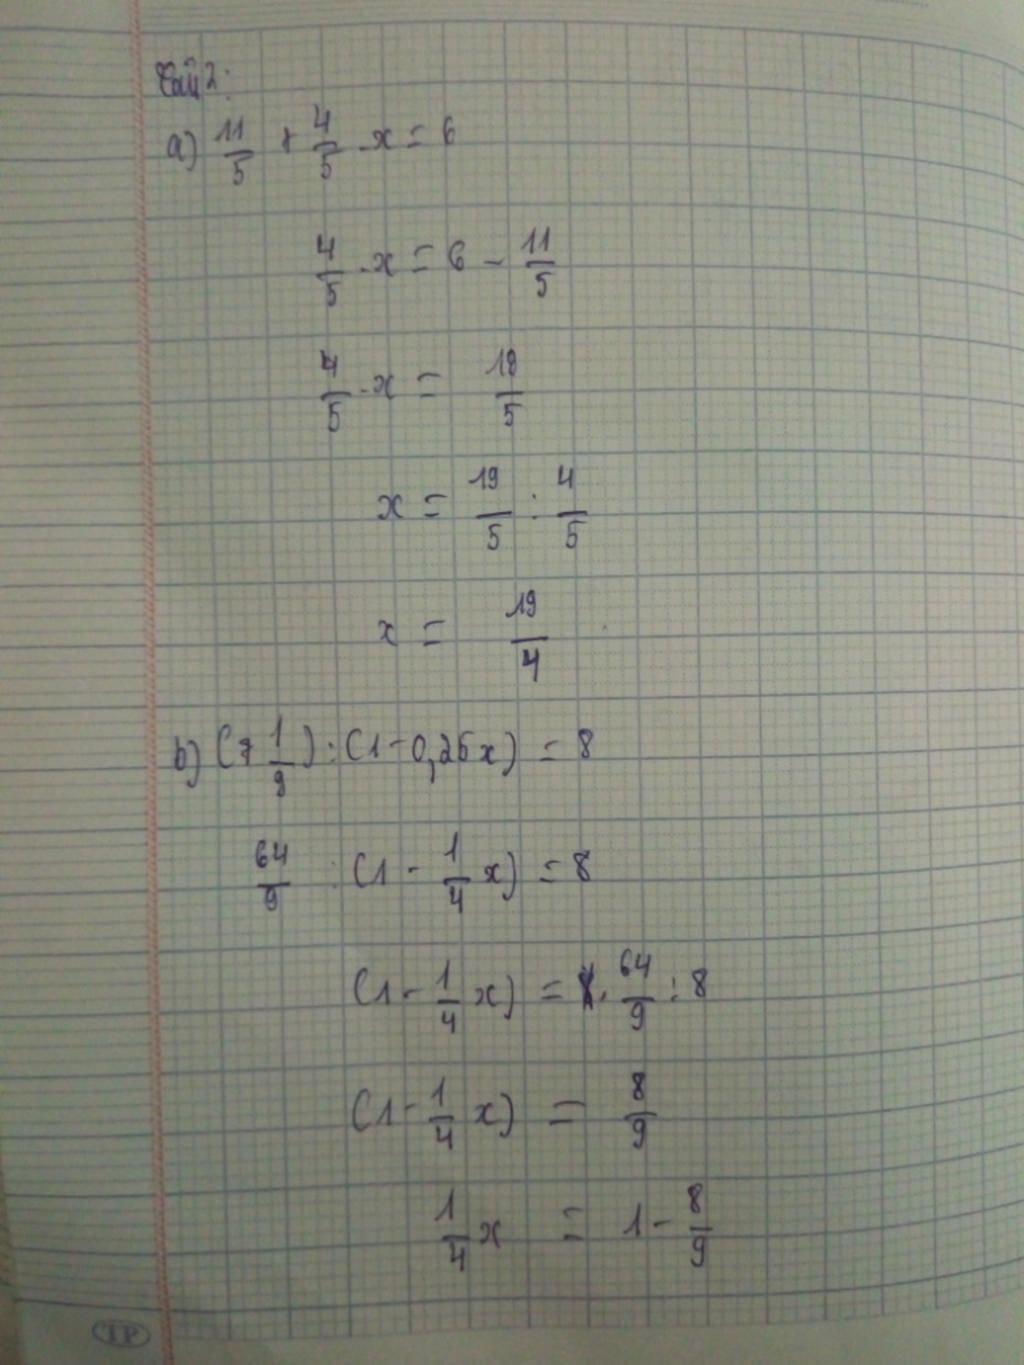 Bài 2:
a) 11/5 + 4/5 . x = 6
4/5 . x = 6 - 11/5
4/5 . x = 19/5
x = 19/5 : 4/5
x = 19/4
b) (7 1/9) : (1 - 0,25x) = 8
64/9 : (1 - 1/4 x) = 8
(1 - 1/4 x) = 64/9 : 8
(1 - 1/4 x) = 8/9
1/4 x = 1 - 8/9